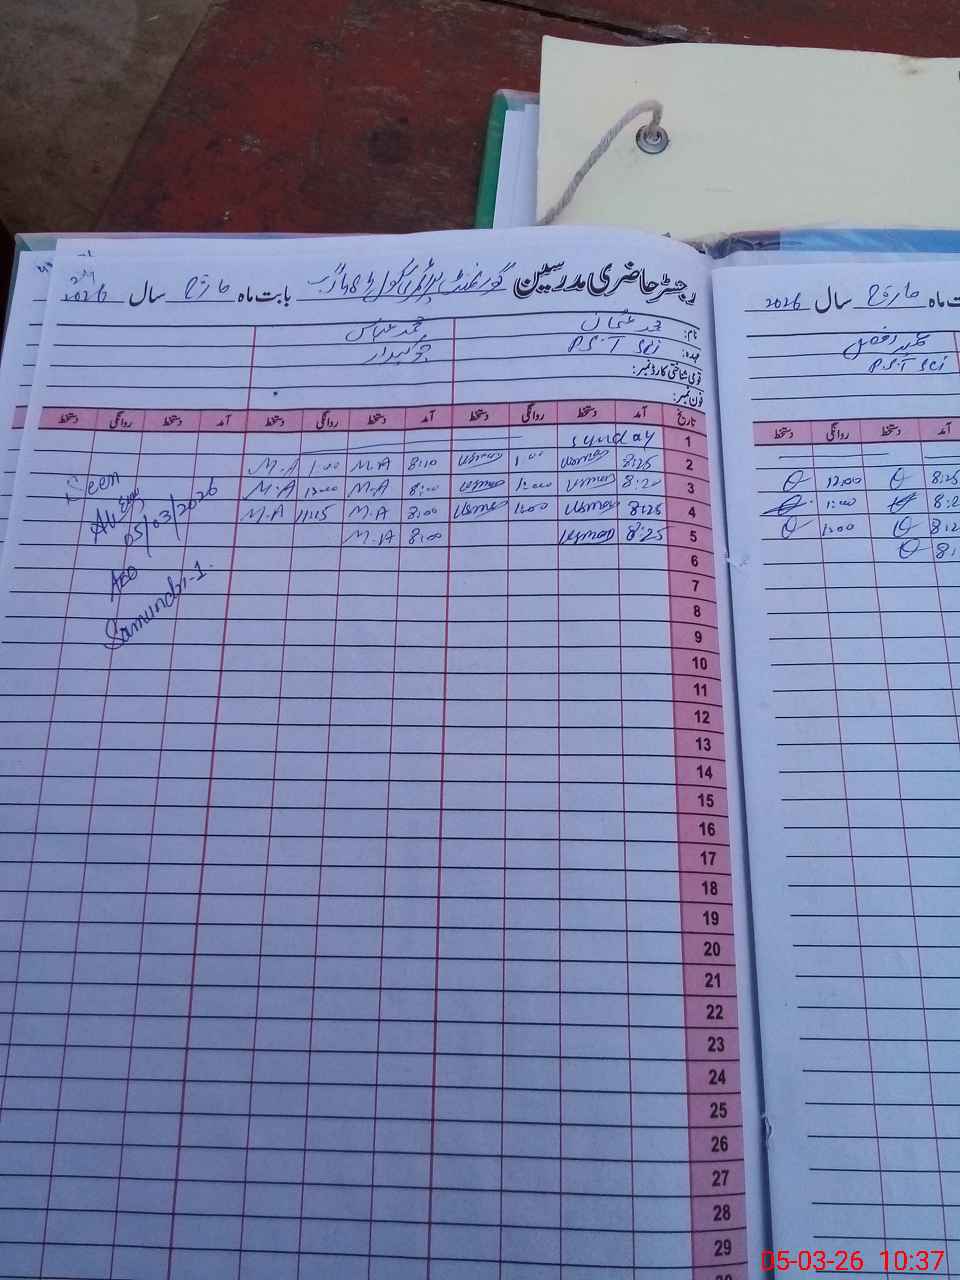 رجسٹر حاضری مدرسین گورنمنٹ پرائمری سکول بابت ماہ مارچ سال 2026
نام: محمد عثمان محمد عباس
عہدہ: P.S.T Sci چوکیدار
قومی شناختی کارڈ نمبر:
فون نمبر:
تاریخ آمد دستخط روانگی دستخط آمد دستخط روانگی دستخط آمد دستخط روانگی دستخط
1 Sunday
2 8:25 Usman 1:00 Usman 8:10 M.A 1:00 M.A
3 8:20 Usman Usman 8:00 M.A M.A
4 8:25 Usman 1:00 Usman 8:00 M.A 11:15 M.A
5 8:25 Usman 8:00 M.A
6
7
8
9
10
11
12
13
14
15
16
17
18
19
20
21
22
23
24
25
26
27
28
29
Seen
05/03/2026
AEO
Samundri-1.
ماہ مارچ سال 2026
P.S.T Sci
دستخط روانگی دستخط آمد
12:00
1:00
1:00
05-03-26 10:37